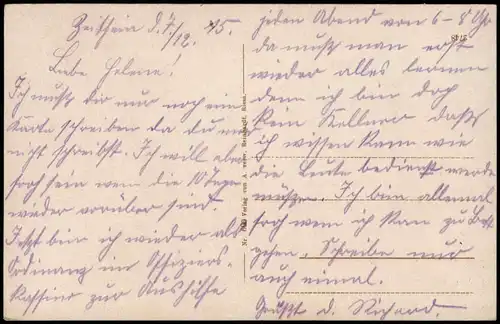 Zeithain d. 7/12. 15.
Liebe Helene!
Ich muß dir nur noch eine
Karte schreiben da du mir
nicht schreibst. Ich will aber
froh sein wenn die 10 Tage
wieder vorüber sind.
Jetzt bin ich wieder als
Ordinanz im Offiziers-
Kassino zur Aushilfe
jeden Abend von 6-8 Uhr
da muß man erst
wieder alles lernen
denn ich bin doch
kein Kellner daß
ich wissen kann wie
die Leute bedienst werde
müssen. Ich bin allemal
froh wenn ich kan zu Bet
gehen. Schreibe mir
auch einmal.
Grüßt d. Richard.
Verlag von A.